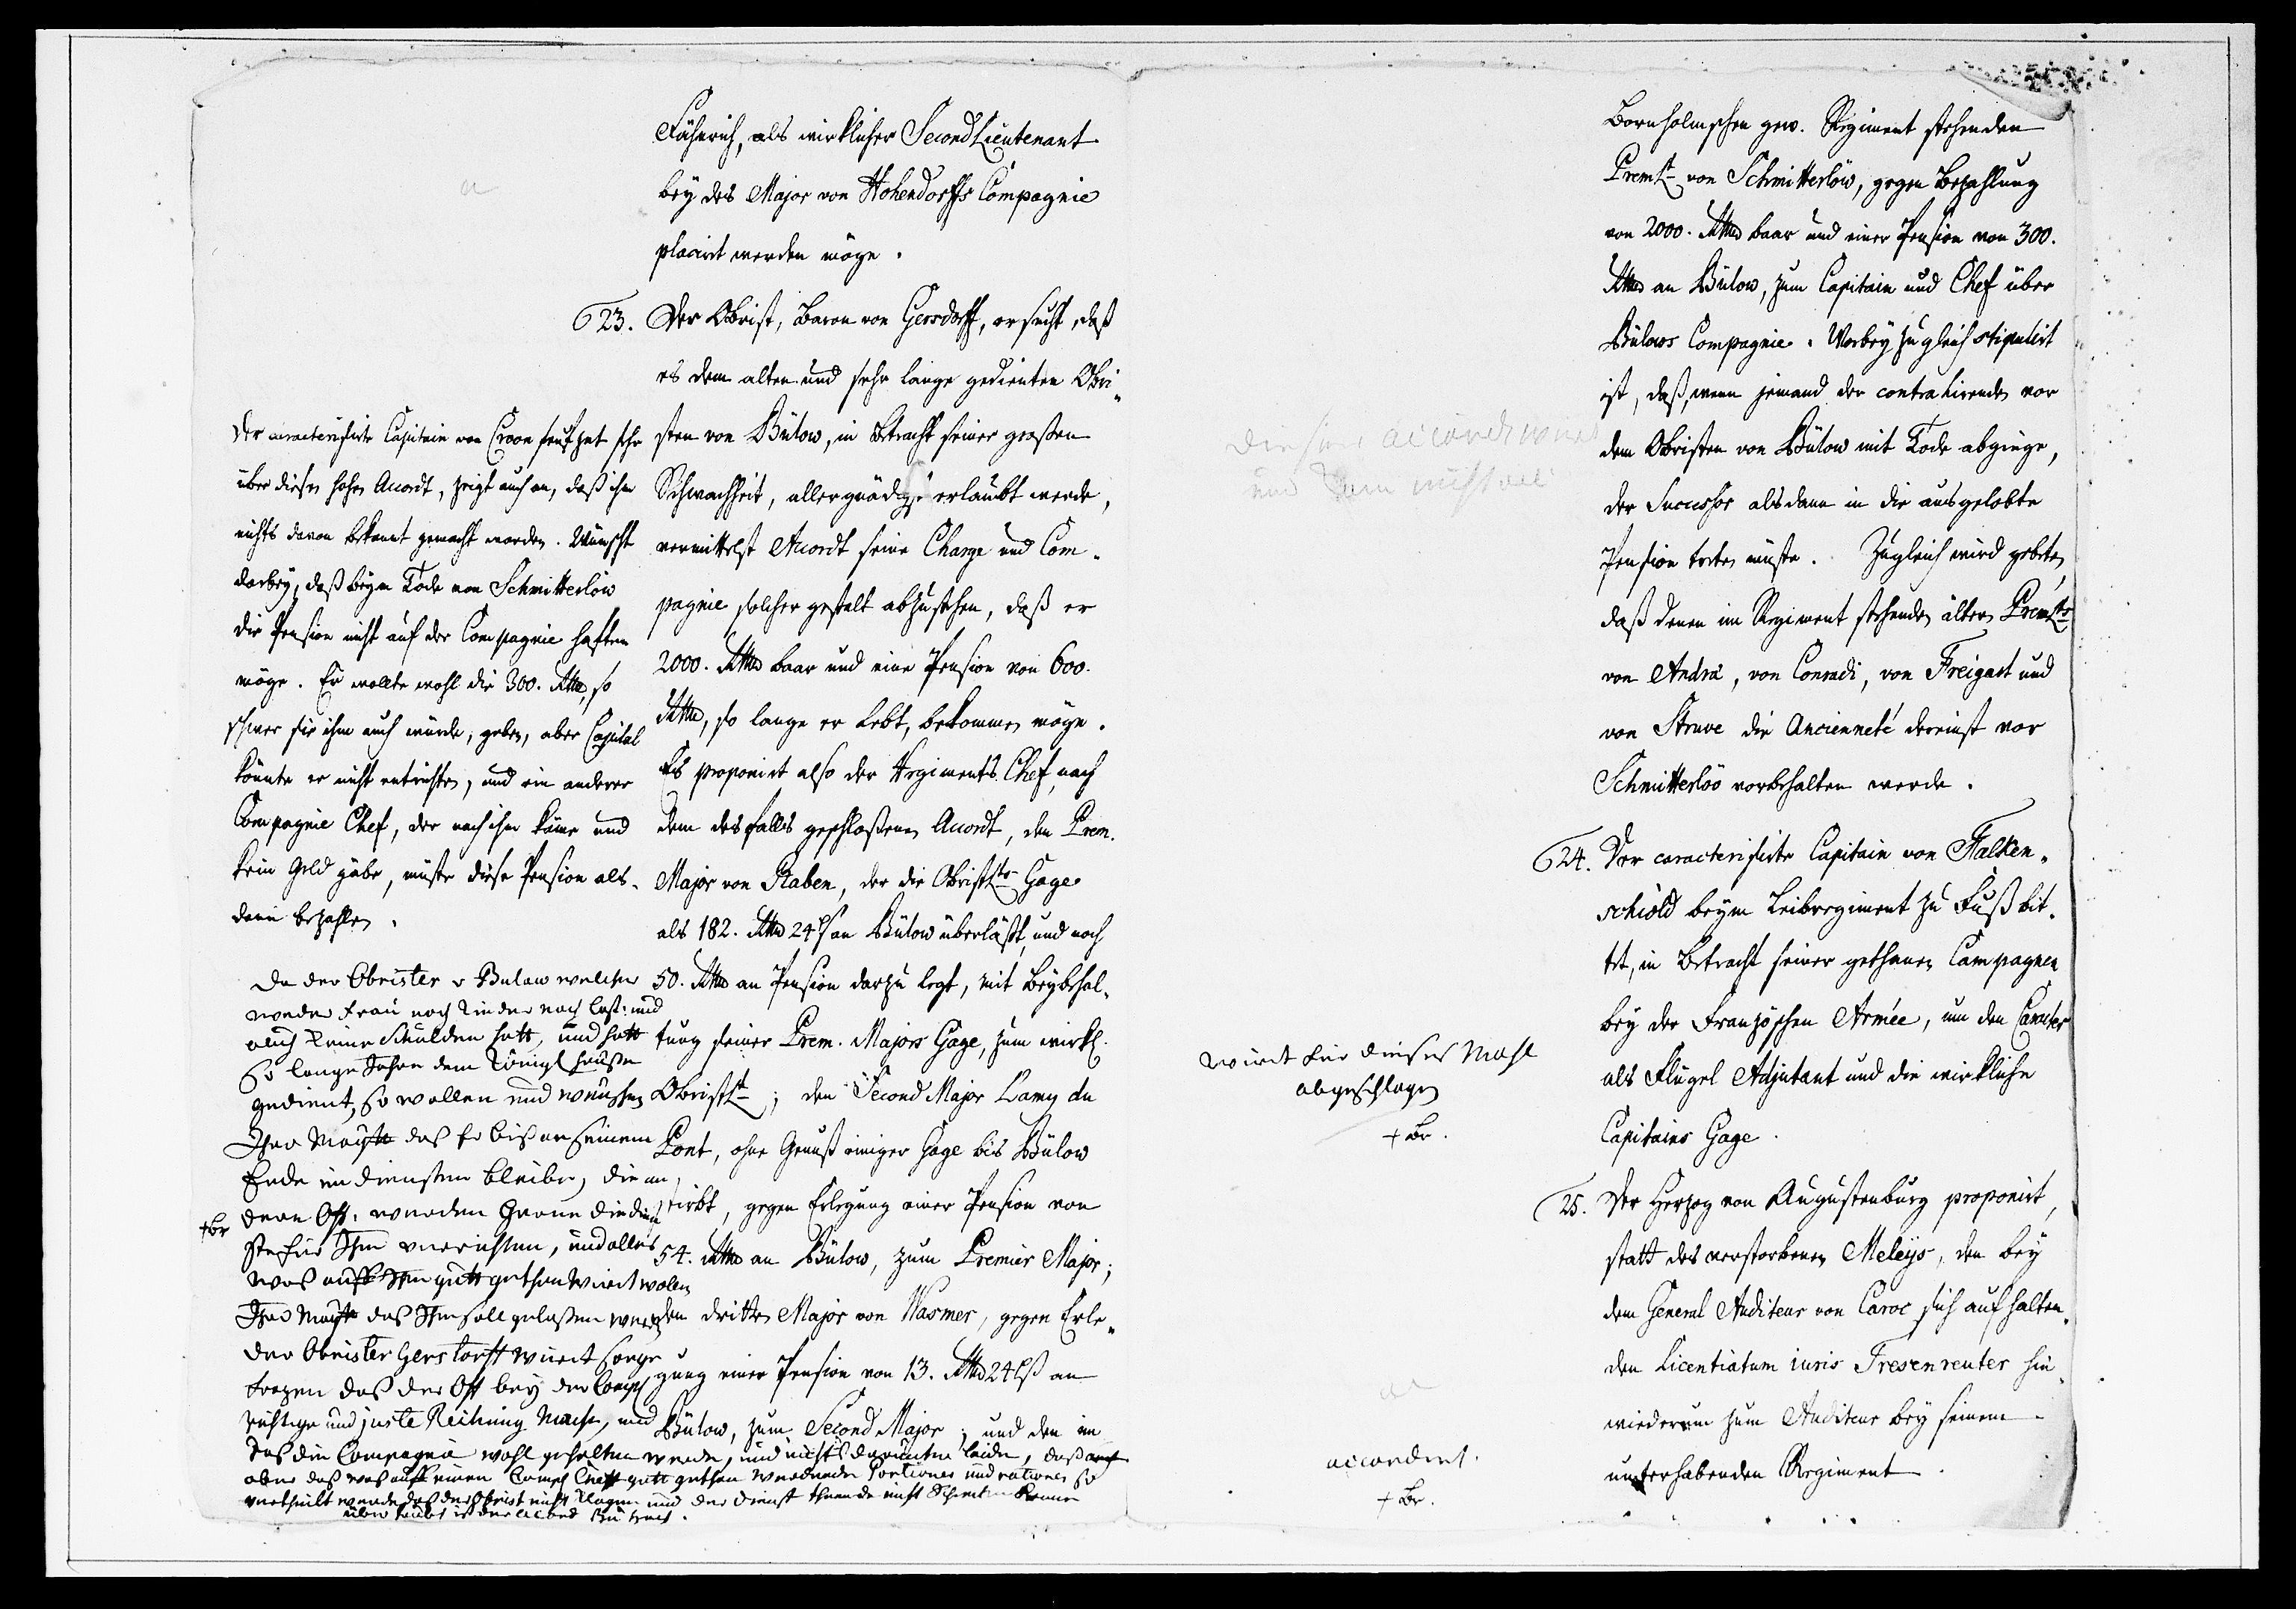 Fähnrich, als wirklicher Second Lieutenant
bey des Major von Hohendorffs Compagnie
placirt werden möge.
23. Der Obrist, Baron von Gersdorff, ersucht, daß
es dem alten und sehr lange gedienten Obri„
sten von Bülow, in Betracht seiner großen
Schwachheit, allergnädigst erlaubt werde,
vermittelst Accordt seine Charge und Com„
pagnie solcher gestalt abzustehen, daß er
2000. Rthlr baar und eine Pension von 600.
Rthlr, so lange er lebt, bekommen möge.
Es proponirt also der Regiments Chef, nach
dem desfalls geschloßenen Accordt, den Prem.
Major von Raben, der die Obristlts Gage
als 182. Rthlr 24 ß an Bülow überläßt, und noch
50. Rthlr an Pension darzu legt, mit Beybehal„
tung seiner Prem. Majors Gage, zum wirkl.
Obristlt; den Second Major Lamy du
Pont, ohne Genuß einiger Gage bis Bülow
stirbt, gegen Erlegung einer Pension von
54. Rthlr an Bülow, zum Premier Major;
den dritten Major von Wasmer, gegen Erle„
gung einer Pension von 13. Rthlr 24 ß an
Bülow, zum Second Major; und den im
Der caracterisirte Capitain von Croon seufzet sehr
über diesen hohen Accordt, zeigt auch an, daß ihm
nichts davon bekannt gemacht worden. Wünscht
darbey, daß beym Tode von Schmitterlöw
die Pension nicht auf der Compagnie haften
möge. Er wollte wohl die 300. Rthlr, so
schwer sie ihm auch würde, geben, aber Capital
könnte er nicht entrichten, und ein anderer
Compagnie Chef, der nach ihm käme und
kein Geld gäbe, müste diese Pension als„
dann bezahlen.
Da der Obrister v Bulow welcher
weder Frau noch Kinder noch Last: und
auch keine Schulden hatt, und hatt
So lange Jahre dem Königl hause
gedient, so wollen und wünschen
Ihro Maytt daß Er biß an seinem
Ende im diensten bleibe, die an
dere Off. werden gerne die dien
ste für Ihm verrichten, und alles
was auff Ihm gutt gethan wird wolen
Ihro Maytt daß Ihm soll gelaßen werd
der Obrister Gerstorff wird sorge
tragen daß der Off bey der Comp
richtige und juste Reichnung mache, und
daß die Compagnie wohl gehalten werde, und nichts darunter leide, daß
aber daß was auff einen Comp Cheff gutt gethan werdende Portiones und rationes so
vertheilt werde daß der Obrist nicht klagen und der Dienst
+Br
Bornholmschen gew. Regiment stehenden
Premlt von Schmitterlöw, gegen Bezahlung
von 2000. Rthlr baar und einer Pension von 300.
Rthlr an Bülow, zum Capitain und Chef über
Bülows Compagnie. Worbey zugleich stipulirt
ist, daß, wenn jemand der contrahirenden vor
dem Obristen von Bülow mit Tode abginge,
der Successor alsdann in die ausgelobte
Pension treten müste. Zugleich wird gebeten,
daß denen im Regiment stehenden ältern Premlts
von Andrä, von Conradi, von Freigast und
von Struve die Ancienneté dereinst vor
Schmitterlöw vorbehalten werde.
24. Der caracterisirte Capitain von Falken„
schiold beym Leibregiment zu Fuß bit„
tet, in Betracht seiner gethanen Campagnen
bey der Französchen Armée, um den Caracter
als Flügel Adjutant und die wirkliche
Capitains Gage.
wird für dieses Mahl
abgeschlagen
+Br.
25. Der Herzog von Augustenburg proponirt,
statt des verstorbenen Meleys, den bey
dem General Auditeur von Caroc sich aufhalten„
den Licentiatum iuris Fresenreuter hin„
wiederum zum Auditeur bey seinem
unterhabenden Regiment.
accordirt.
+Br.